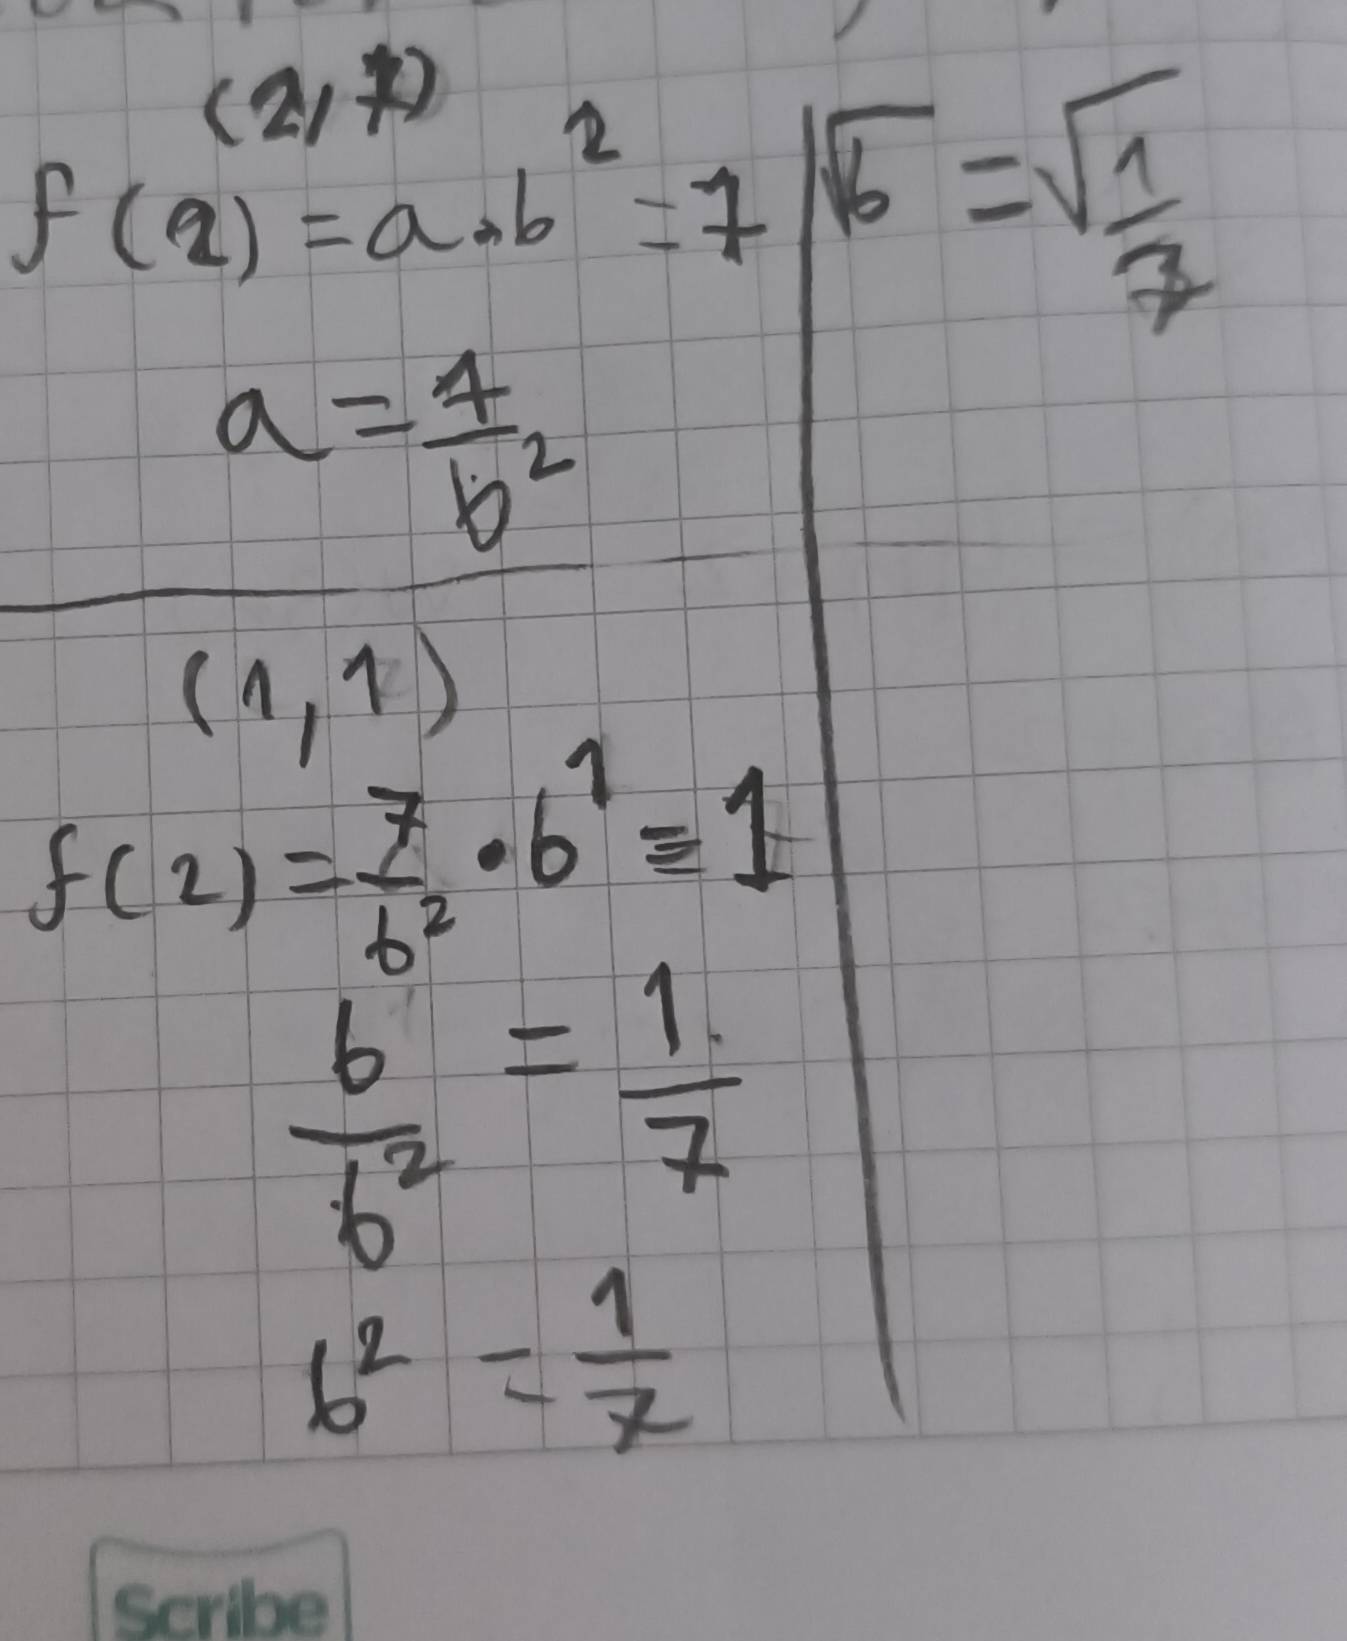 (2,7)
f(2) = a·b² = 7
a = 7/b²
(1,1)
f(2) = 7/b² · b¹ = 1
b/b² = 1/7
b² = 1/7
√b = √1/7
Scribe